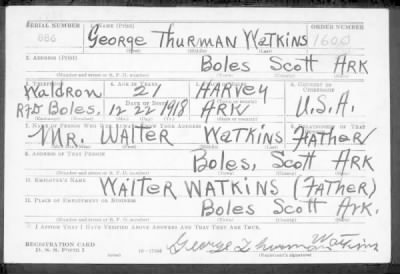 SERIAL NUMBER 1. NAME (Print) ORDER NUMBER
886 George Thurman Watkins 1600
(First) (Middle) (Last)
2. ADDRESS (Print)
Boles Scott Ark
(Number and street or R. F. D. number) (Town) (County) (State)
3. TELEPHONE 4. AGE IN YEARS 5. PLACE OF BIRTH 6. COUNTRY OF CITIZENSHIP
Waldron 21 Harvey
DATE OF BIRTH
RFD Boles, 12 22 1918 Ark U.S.A.
(Exchange) (Number) (Mo.) (Day) (Yr.) (State or country)
7. NAME OF PERSON WHO WILL ALWAYS KNOW YOUR ADDRESS 8. RELATIONSHIP OF THAT PERSON
Mr. Walter Watkins Father
(Mr., Mrs., Miss) (First) (Middle) (Last)
9. ADDRESS OF THAT PERSON
Boles, Scott Ark
(Number and street or R. F. D. number) (Town) (County) (State)
10. EMPLOYER'S NAME
Walter Watkins (Father)
11. PLACE OF EMPLOYMENT OR BUSINESS
Boles Scott Ark.
(Number and street or R. F. D. number) (Town) (County) (State)
I AFFIRM THAT I HAVE VERIFIED ABOVE ANSWERS AND THAT THEY ARE TRUE.
REGISTRATION CARD George Thurman Watkins
D. S. S. FORM 1 (Registrant's signature)